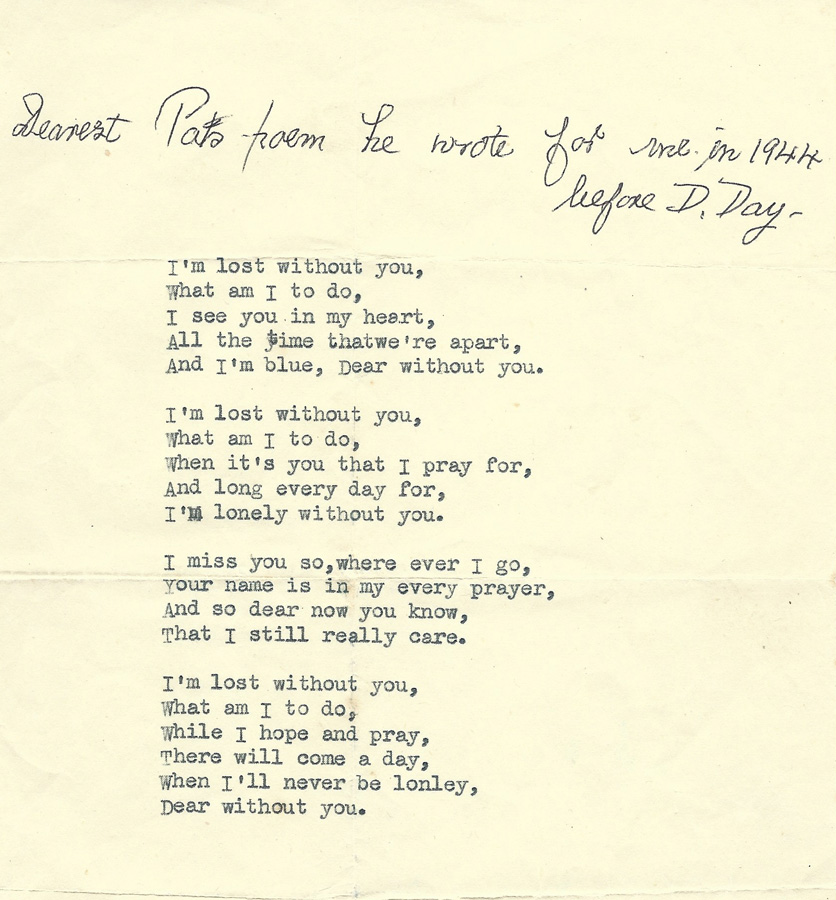 Dearest Pats poem he wrote for me in 1944
before D. Day-
I'm lost without you,
What am I to do,
I see you in my heart,
All the time thatwe're apart,
And I'm blue, Dear without you.
I'm lost without you,
What am I to do,
When it's you that I pray for,
And long every day for,
I'M lonely without you.
I miss you so,where ever I go,
Your name is in my every prayer,
And so dear now you know,
That I still really care.
I'm lost without you,
What am I to do,
While I hope and pray,
There will come a day,
When I'll never be lonley,
Dear without you.